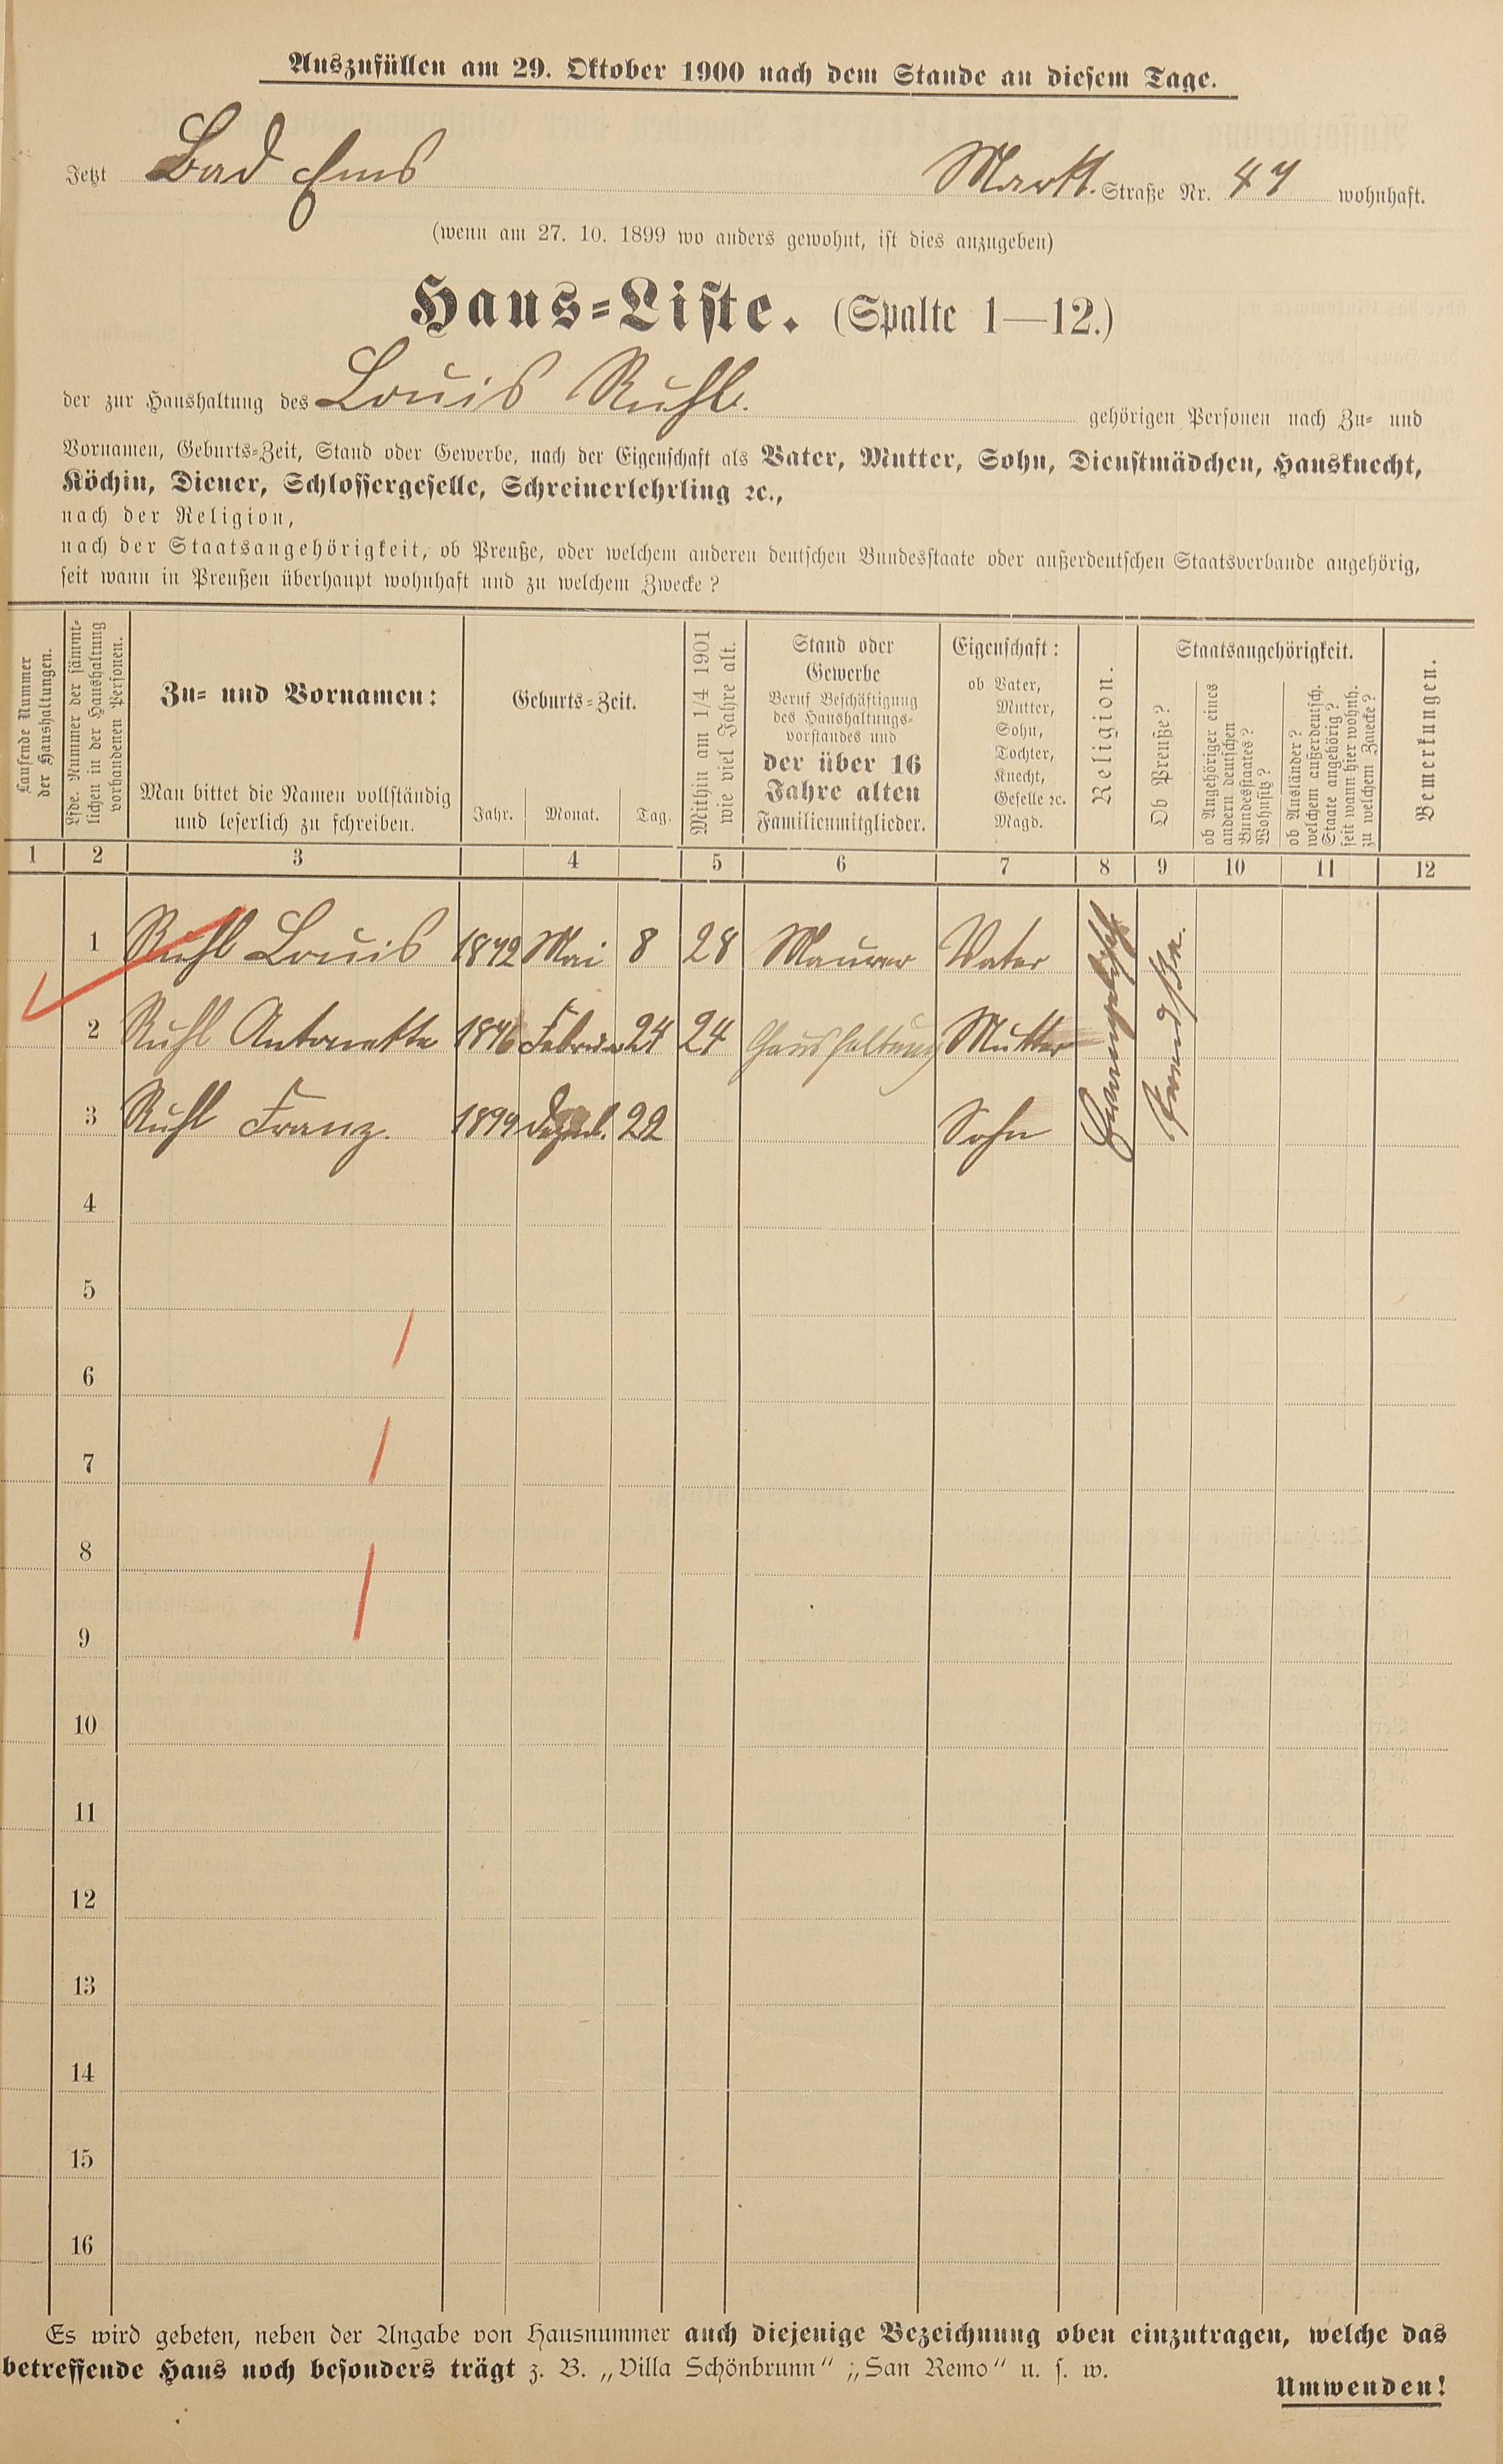 Auszufüllen am 29. Oktober 1900 nach dem Stande an diesem Tage.
Jetzt Bad Ems Markt. Straße Nr. 47 wohnhaft.
(wenn am 27. 10. 1899 wo anders gewohnt, ist dies anzugeben)
Haus-Liste. (Spalte 1—12.)
der zur Haushaltung des Louis Ruhl. gehörigen Personen nach Zu- und
Vornamen, Geburts-Zeit, Stand oder Gewerbe, nach der Eigenschaft als Vater, Mutter, Sohn, Dienstmädchen, Hausknecht,
Köchin, Diener, Schlossergeselle, Schreinerlehrling ꝛc.,
nach der Religion,
nach der Staatsangehörigkeit, ob Preuße, oder welchem anderen deutschen Bundesstaate oder außerdeutschen Staatsverbande angehörig,
seit wann in Preußen überhaupt wohnhaft und zu welchem Zwecke?
Laufende Nummer
der Haushaltungen.
Lfde. Nummer der sämmt-
lichen in der Haushaltung
vorhandenen Personen.
Zu- und Vornamen:
Man bittet die Namen vollständig
und leserlich zu schreiben.
Geburts-Zeit.
Jahr. Monat. Tag.
Mithin am 1/4 1901
wie viel Jahre alt.
Stand oder
Gewerbe
Beruf Beschäftigung
des Haushaltungs-
vorstandes und
der über 16
Jahre alten
Familienmitglieder.
Eigenschaft:
ob Vater,
Mutter,
Sohn,
Tochter,
Knecht,
Geselle ꝛc.
Magd.
Religion.
Staatsangehörigkeit.
Ob Preuße?
ob Angehöriger eines
andern deutschen
Bundesstaates?
Wohnsitz?
ob Ausländer?
welchem außerdeutsch.
Staate angehörig?
seit wann hier wohnh.
zu welchem Zwecke?
Bemerkungen.
1 2 3 4 5 6 7 8 9 10 11 12
1 Ruhl Louis 1872 Mai 8 28 Maurer Vater
2 Ruhl Antonette 1876 Februar 24 24 Haushaltung Mutter
3 Ruhl Franz. 1899 Dezemb. 22 Sohn
Evangelisch
4
5
6
7
8
9
10
11
12
13
14
15
16
Es wird gebeten, neben der Angabe von Hausnummer auch diejenige Bezeichnung oben einzutragen, welche das
betreffende Haus noch besonders trägt z. B. „Villa Schönbrunn“ „San Remo“ u. s. w.
Umwenden!